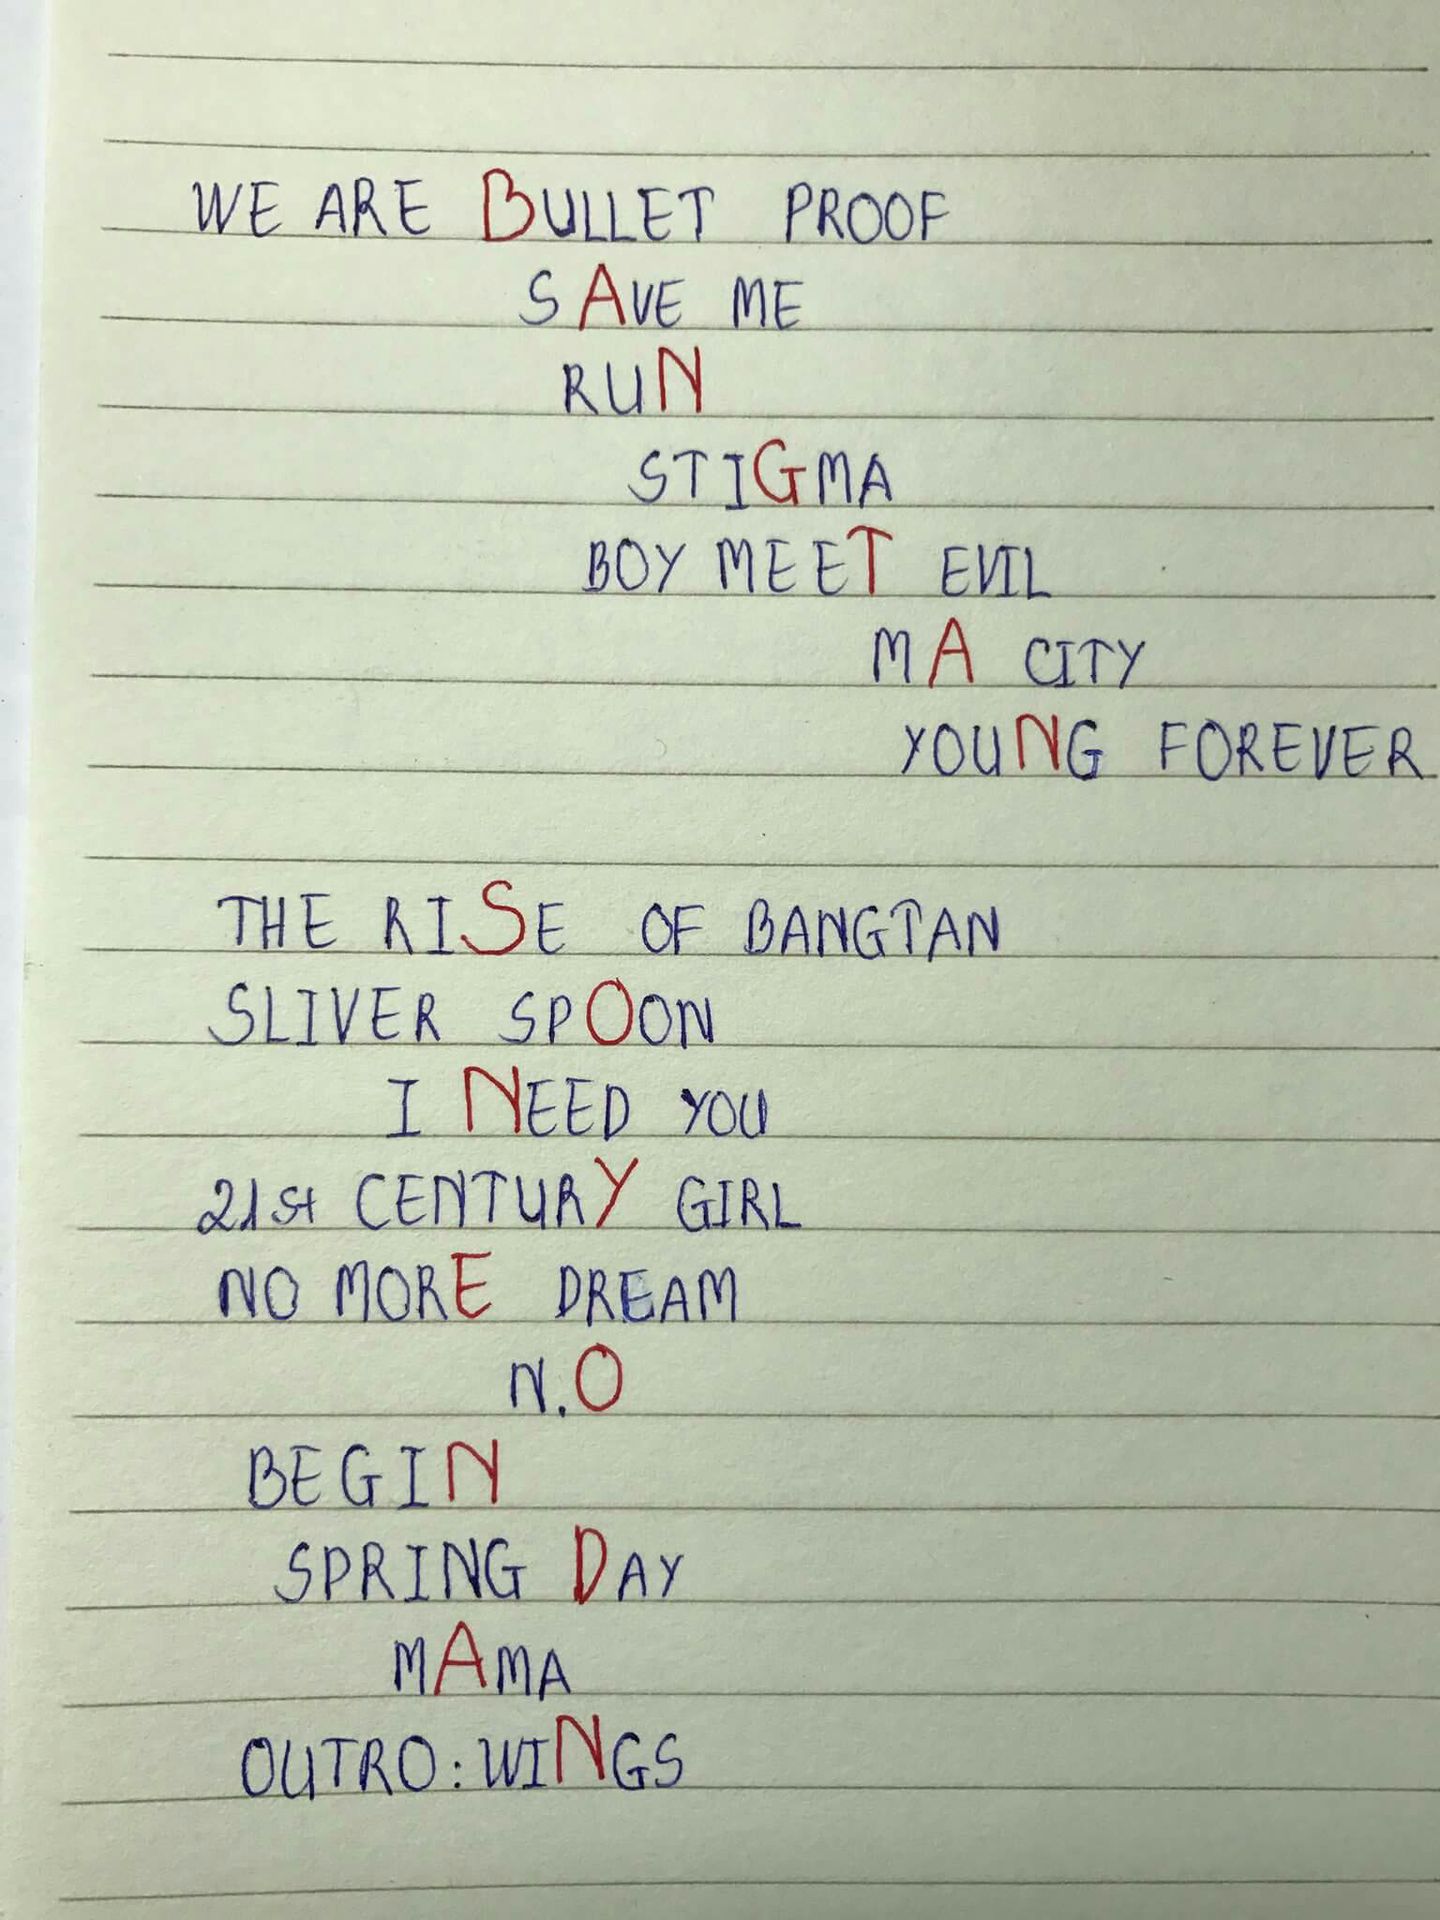 WE ARE BULLET PROOF
SAVE ME
RUN
STIGMA
BOY MEET EVIL
MA CITY
YOUNG FOREVER
THE RISE OF BANGTAN
SLIVER SPOON
I NEED YOU
21st CENTURY GIRL
NO MORE DREAM
N.O
BEGIN
SPRING DAY
MAMA
OUTRO: WINGS